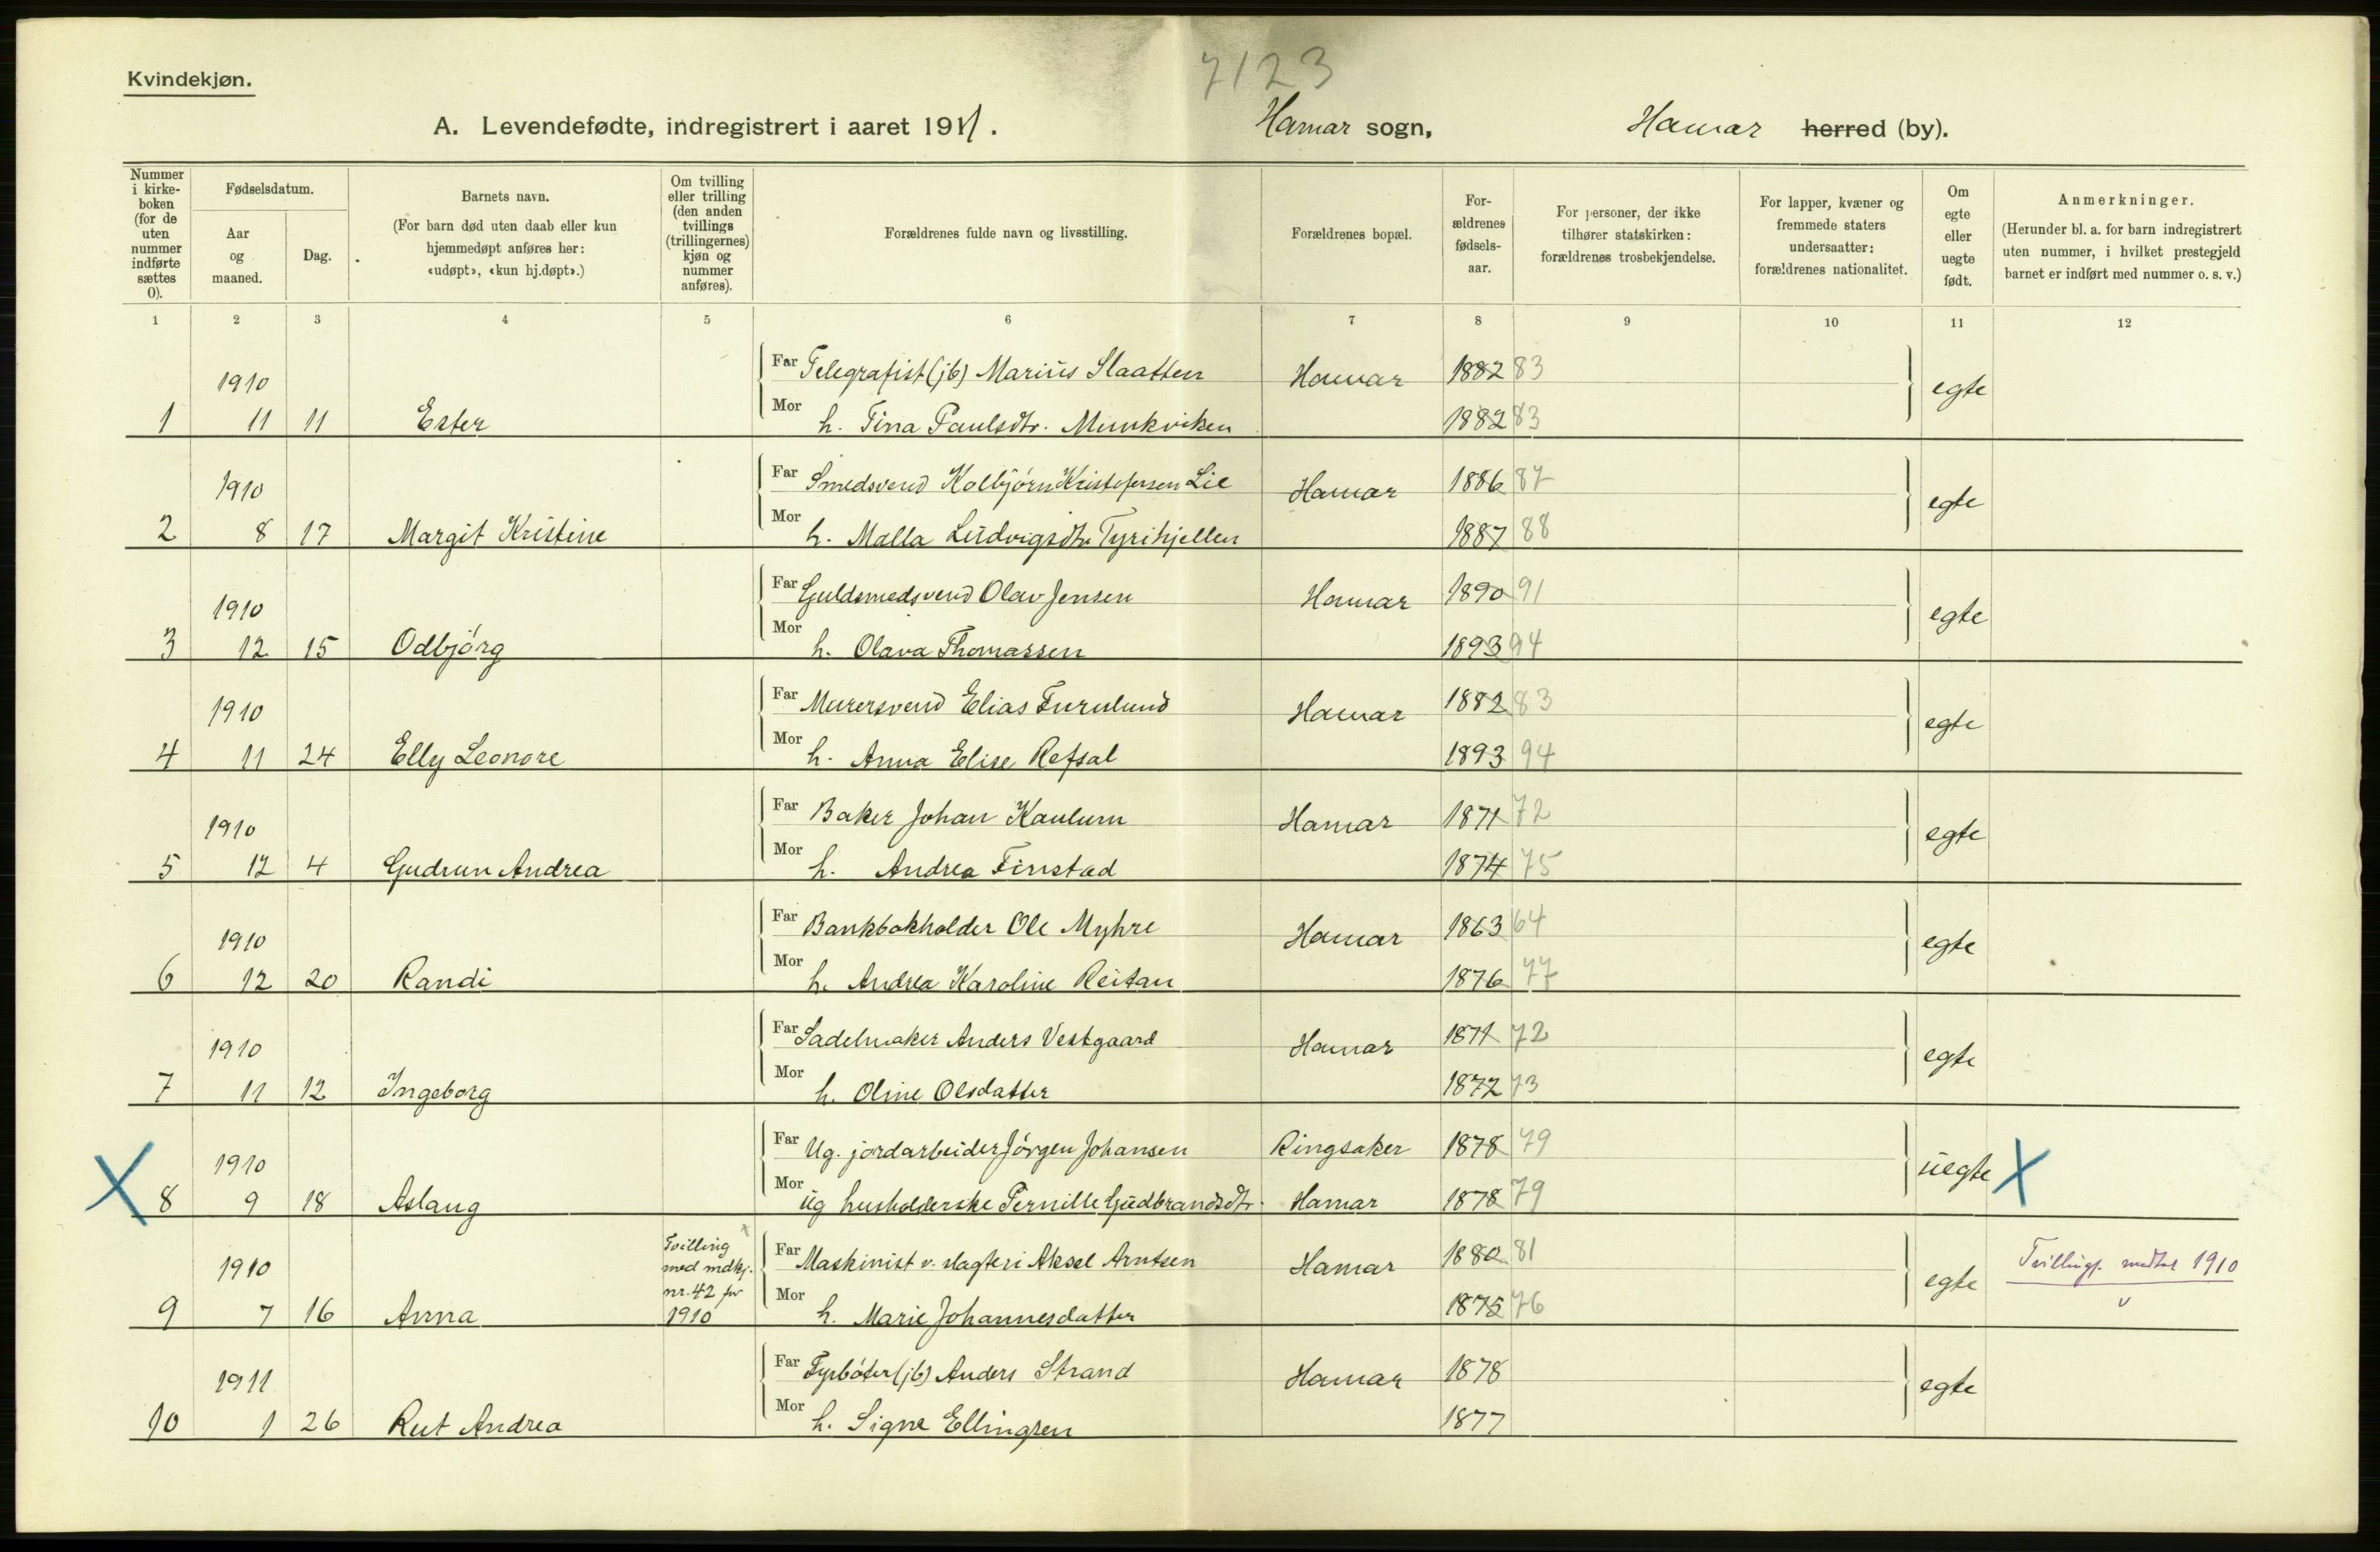 7123
Kvindekjøn.
A. Levendefødte, indregistrert i aaret 1911. Hamar sogn, Hamar herred (by).
Nummer i kirke-boken (for de uten nummer indførte sættes 0).
Fødselsdatum.
Aar og maaned.
Dag.
Barnets navn.
(For barn død uten daab eller kun hjemmedøpt anføres her: «udøpt», «kun hj.døpt».)
Om tvilling eller trilling (den anden tvillings (trillingernes) kjøn og nummer anføres).
Forældrenes fulde navn og livsstilling.
Forældrenes bopæl.
For-ældrenes fødsels-aar.
For personer, der ikke tilhører statskirken: forældrenes trosbekjendelse.
For lapper, kvæner og fremmede staters undersaatter: forældrenes nationalitet.
Om egte eller uegte født.
Anmerkninger.
(Herunder bl. a. for barn indregistrert uten nummer, i hvilket prestegjeld barnet er indført med nummer o. s. v.)
1 2 3 4 5 6 7 8 9 10 11 12
1910 Far Telegrafist (jb) Marius Slaatten Hamar 1882 83 egte
1 11 11 Ester Mor h. Tina Paulsdtr. Munkviken 1882 83
1910 Far Smedsvend Kolbjørn Kristofersen Lie Hamar 1886 87 egte
2 8 17 Margit Kristine Mor h. Malla Ludvigsdtr Tyrihjellen 1887 88
1910 Far Guldsmedsvend Olav Jensen Hamar 1890 91 egte
3 12 15 Odbjórg Mor h. Olava Thomassen 1893 94
1910 Far Murersvend Elias Furulund Hamar 1882 83 egte
4 11 24 Elly Leonore Mor h. Anna Elise Refsal 1893 94
1910 Far Baker Johan Kaulum Hamar 1871 72 egte
5 12 4 Gudrun Andrea Mor h. Andrea Finstad 1874 75
1910 Far Bankbokholder Ole Myhre Hamar 1863 64 egte
6 12 20 Randi Mor h. Andrea Karoline Reitan 1876 77
1910 Far Sadelmaker Anders Vestgaard Hamar 1871 72 egte
7 11 12 Ingeborg Mor h. Oline Olsdatter 1872 73
1910 Far Ug. jordarbeider Jórgen Johansen Ringsaker 1878 79 uegte X
X 8 9 18 Aslaug Mor ug husholderske Pernille Gudbrandsdtr. Hamar 1878 79
1910 Tvilling med mdkj. nr. 42 for 1910 Far Maskinist v. slagteri Aksel Arntsen Hamar 1880 81 egte Tvillingf. medtat 1910
9 7 16 Anna Mor h. Marie Johannesdatter 1875 76
1911 Far Fyrbóter (jb) Anders Strand Hamar 1878 egte
10 1 26 Rut Andrea Mor h. Signe Ellingsen 1877